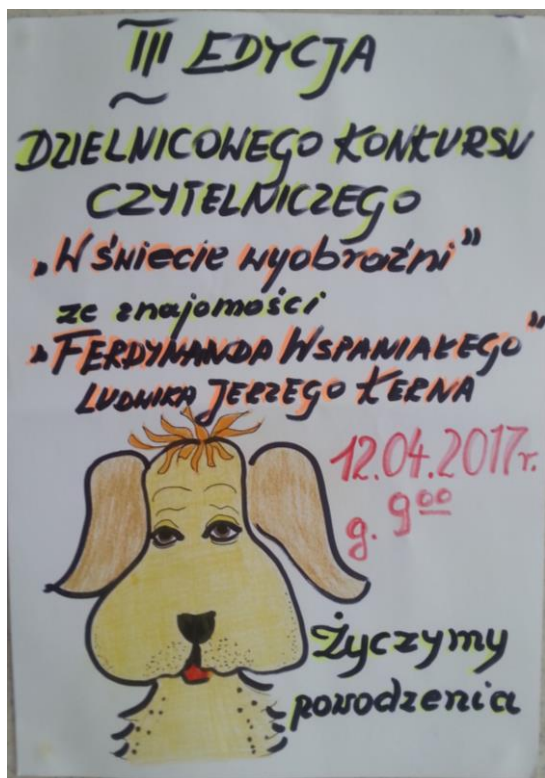 III EDYCJA
DZIELNICOWEGO KONKURSU
CZYTELNICZEGO
„W świecie wyobraźni”
ze znajomości
„FERDYNANDA WSPANIAŁEGO”
LUDWIKA JERZEGO KERNA
12.04.2017r.
g. 9⁰⁰
Życzymy
powodzenia